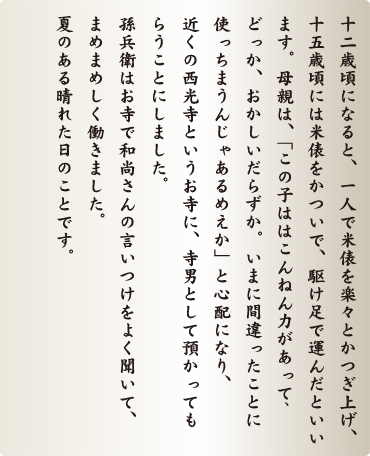 十二歳頃になると、一人で米俵を楽々とかつぎ上げ、
十五歳頃には米俵をかついで、駆け足で運んだといい
ます。母親は、「この子ははこんねん力があって、
どっか、おかしいだらずか。いまに間違ったことに
使っちまうんじゃあるめえか」と心配になり、
近くの西光寺というお寺に、寺男として預かっても
らうことにしました。
孫兵衛はお寺で和尚さんの言いつけをよく聞いて、
まめまめしく働きました。
夏のある晴れた日のことです。